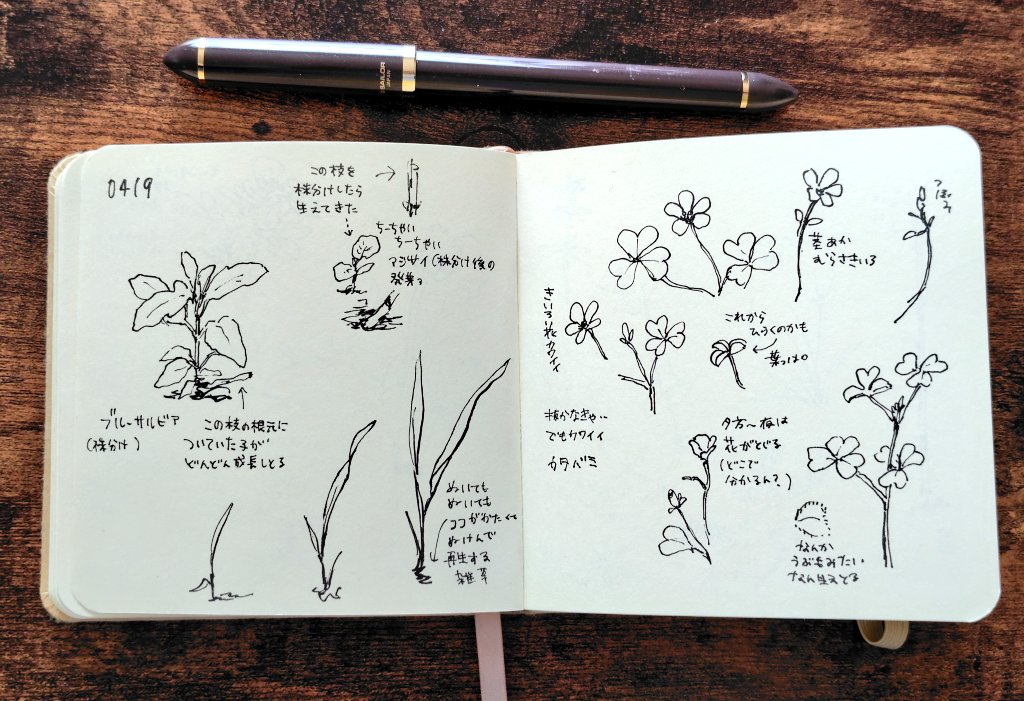 SAILOR
JAPAN
0419
この枝を
株分けしたら
生えてきた
ちーちゃい
ちーちゃい
アジサイ(株分け後の
発芽)
ブルーサルビア
(株分け)
この枝の根元に
ついていた子が
どんどん成長しとる
ぬいても
ぬいても
ココがかたくて
ぬけんで
再生する
雑草
きいろい花カワイイ
抜かなきゃ…
でもカワイイ
カタバミ
茎あか
むらさきいろ
つぼみ
これから
ひらくのかも
葉っぱ
夕方〜夜は
花がとじる
(どこで
分かるん?)
なんか
うぶ毛みたい
なん生えとる